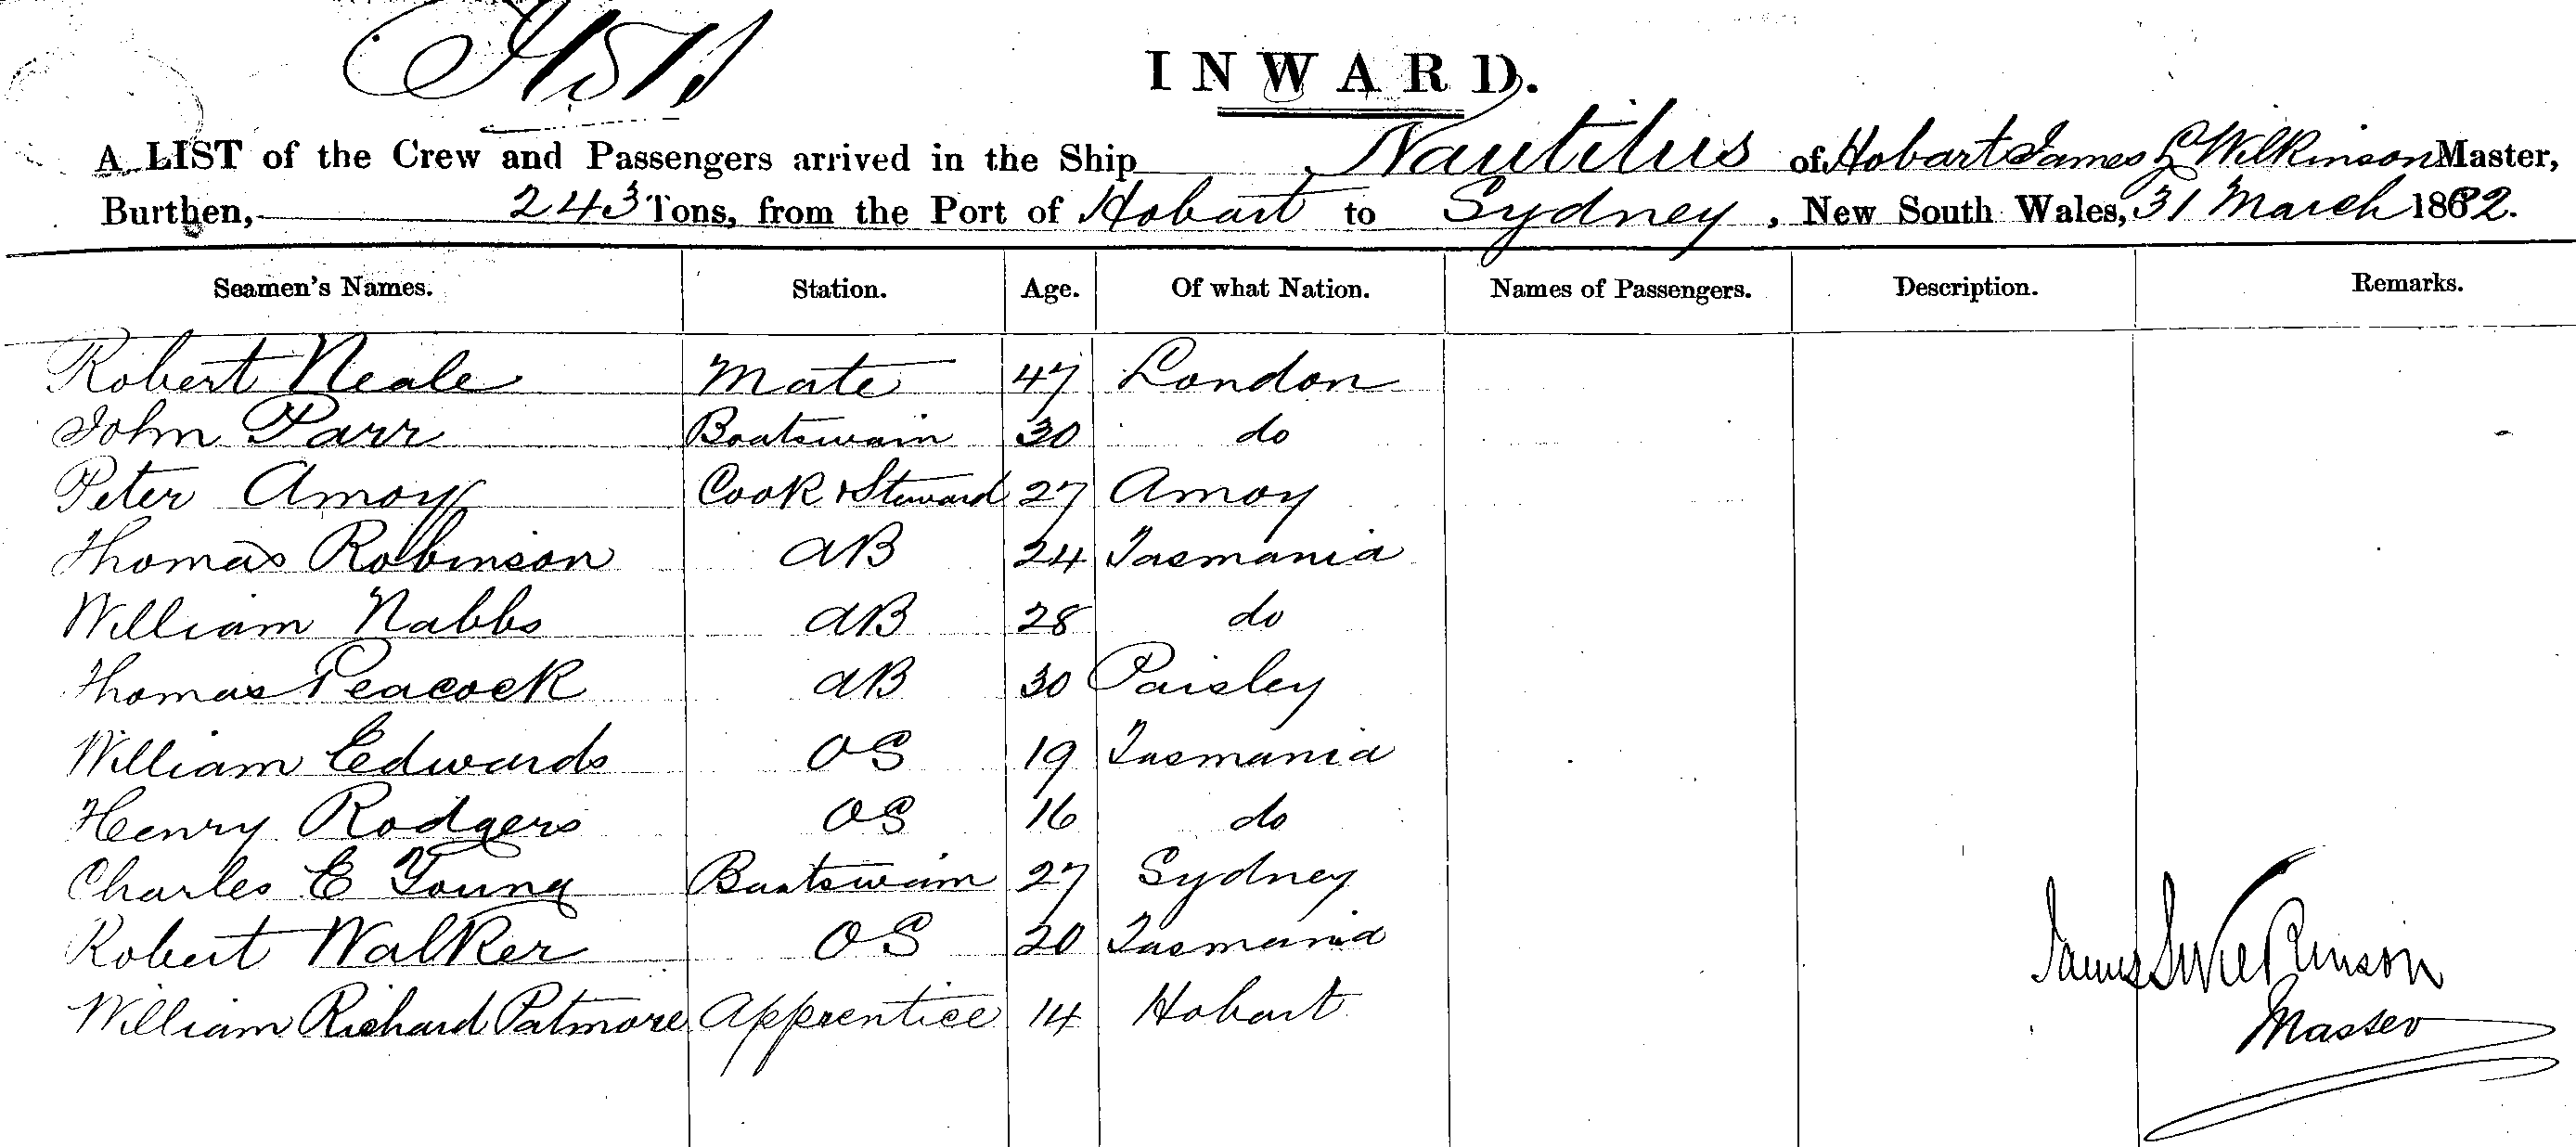 INWARD.
A LIST of the Crew and Passengers arrived in the Ship Nautilus of Hobart James S Wilkinson Master,
Burthen, 243 Tons, from the Port of Hobart to Sydney, New South Wales, 31 March 1882.
Seamen's Names. Station. Age. Of what Nation. Names of Passengers. Description. Remarks.
Robert Neale Mate 47 London
John Parr Boatswain 30 do
Peter Amoy Cook & Steward 27 Amoy
Thomas Robinson AB 24 Tasmania
William Nabbs AB 28 do
Thomas Peacock AB 30 Paisley
William Edwards OS 19 Tasmania
Henry Rodgers OS 16 do
Charles E Young Boatswain 27 Sydney
Robert Walker OS 20 Tasmania
James S Wilkinson
William Richard Patmore Apprentice 14 Hobart
Master